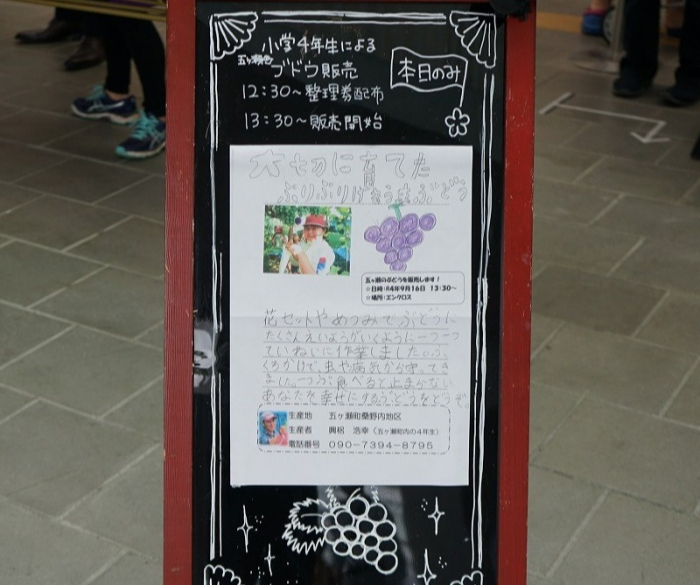 小学4年生による
五ヶ瀬色
ブドウ販売
本日のみ
12:30〜整理券配布
13:30〜販売開始
大切に育てた
ぷりぷりげきうまぶどう
五ヶ瀬のぶどうを販売します!
☆日時:R4年9月16日 13:30〜
☆場所:エンクロス
花セットやめつみでぶどうに
たくさんえいようがいくように一つ一つ
ていねいに作業しました。
ふくろかけで、虫や病気から守ってき
ました。一つぶ食べると止まらない
あなたを幸せにするぶどうをどうぞ。
生産地 五ヶ瀬町桑野内地区
生産者 興梠 浩幸(五ヶ瀬町内の4年生)
電話番号 090-7394-8795